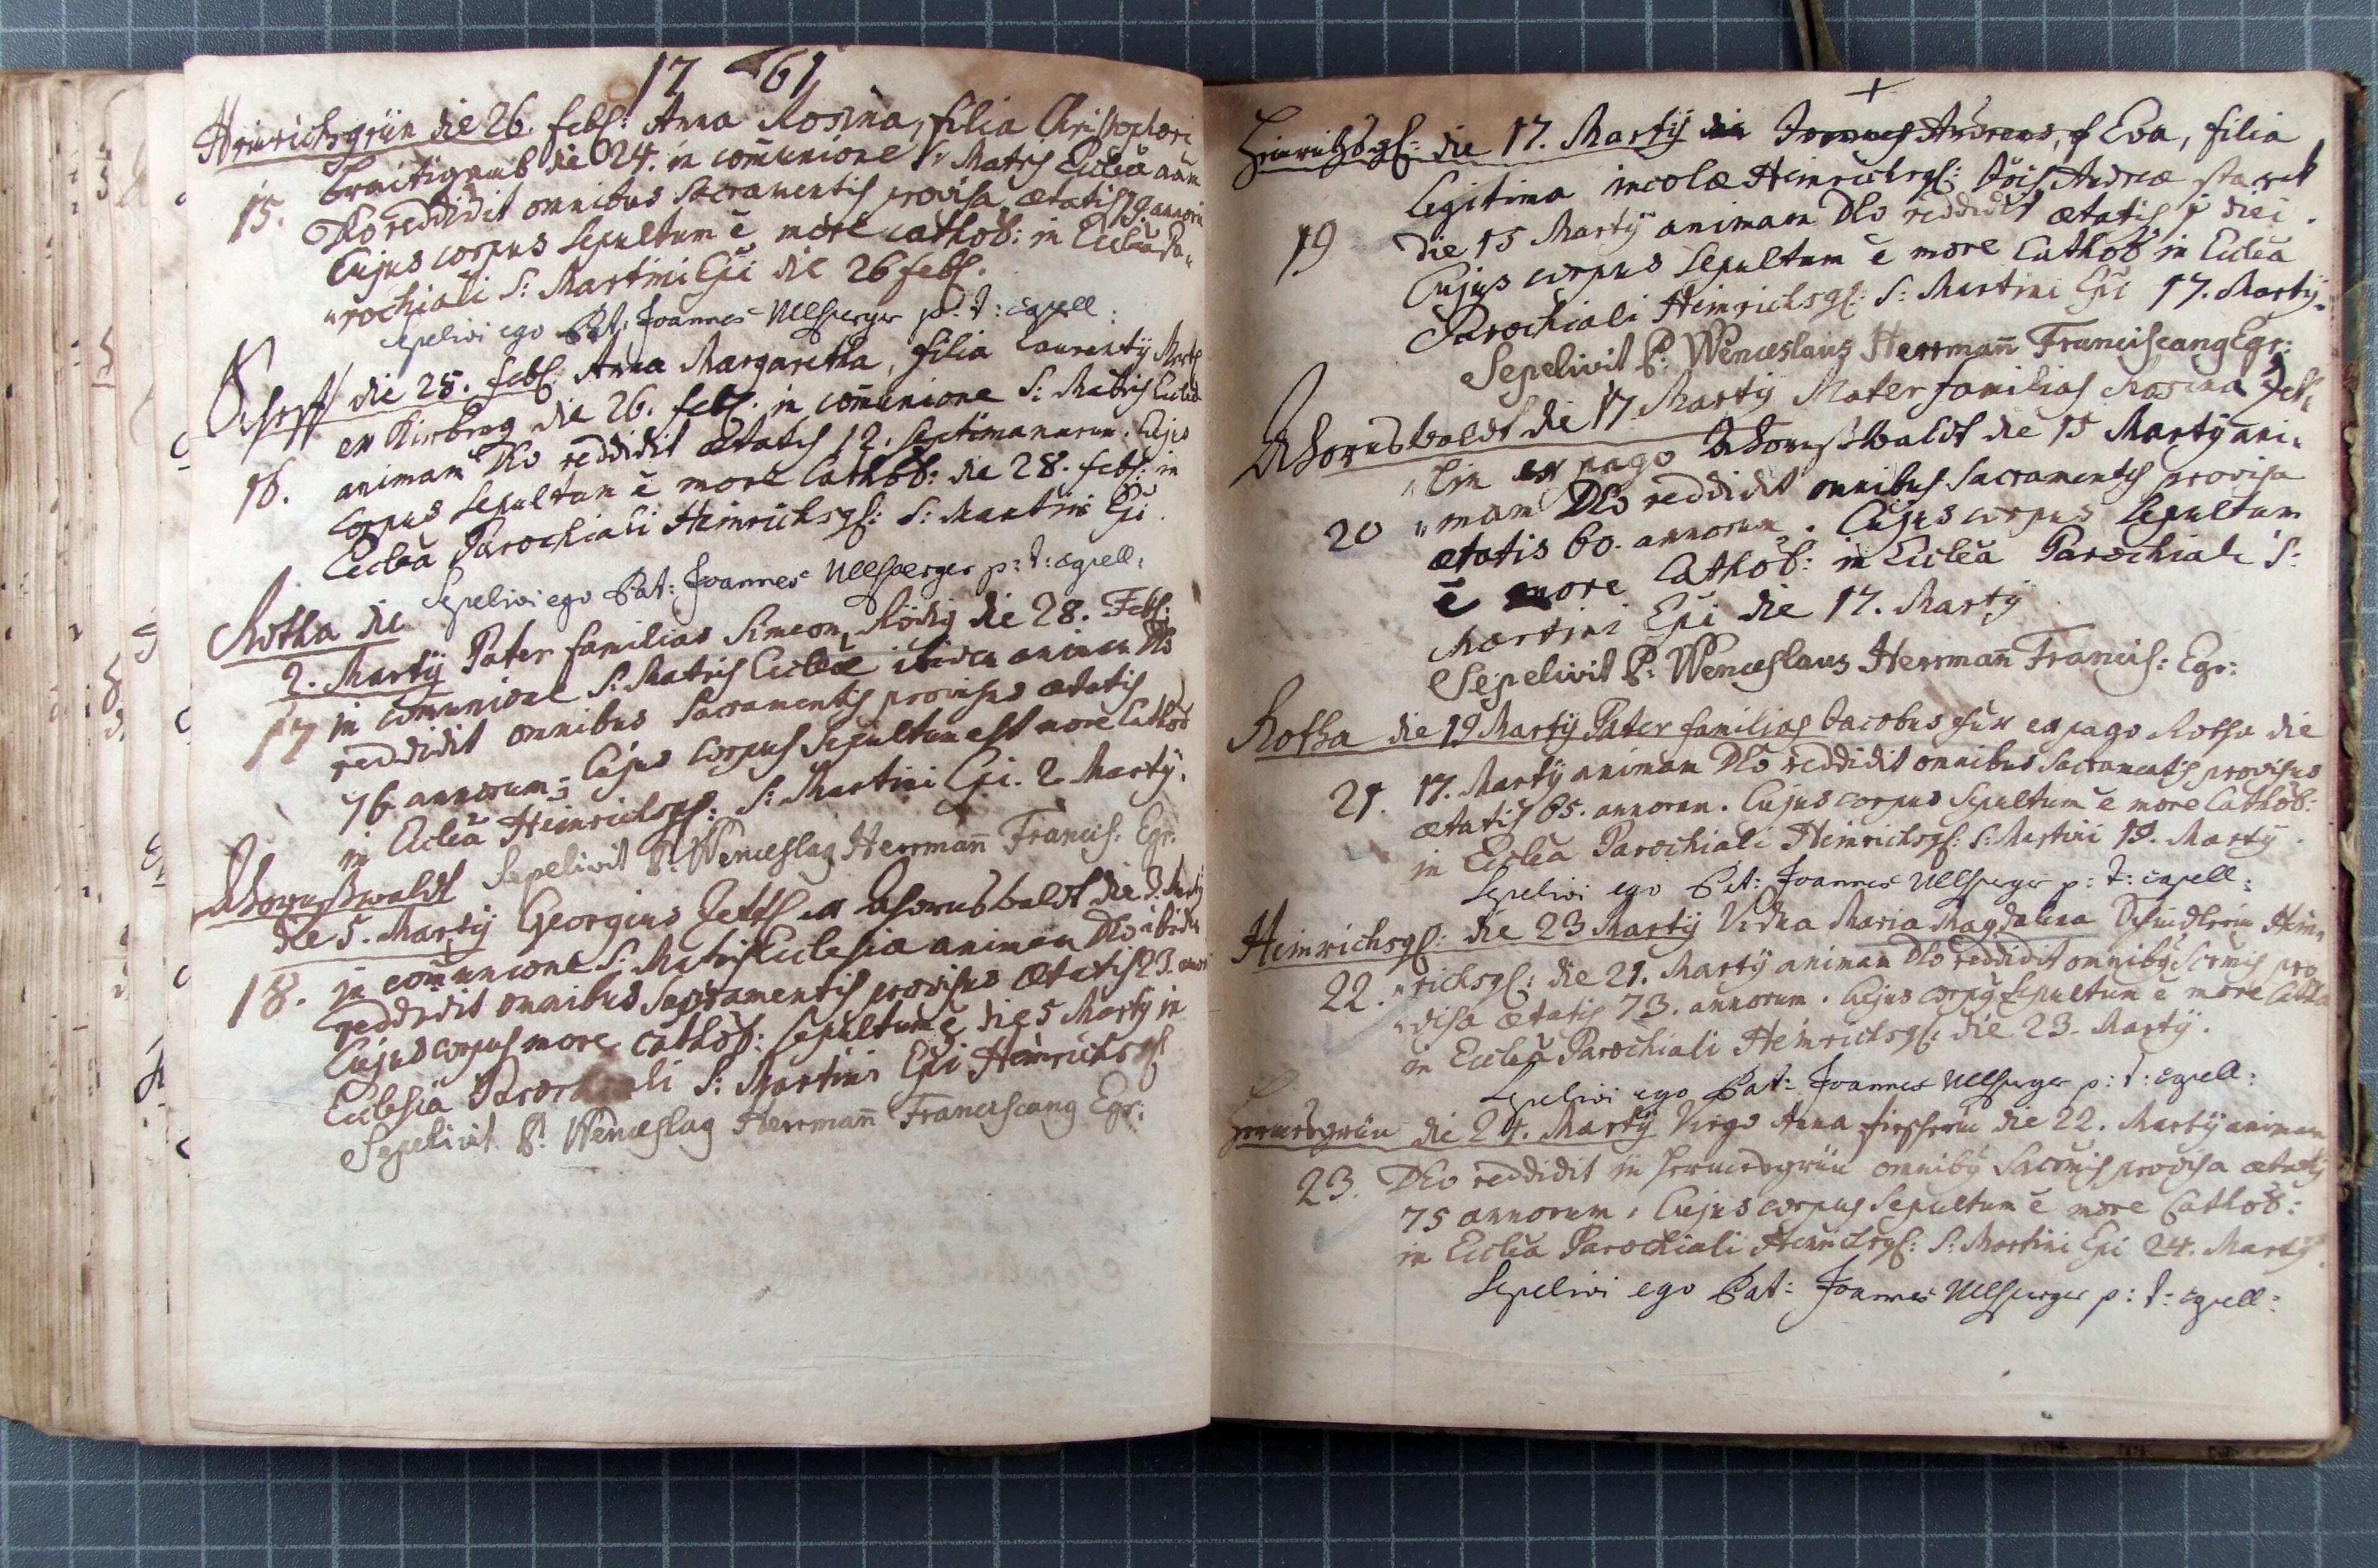 17 61
Heinrichsgrün die 26. febr: Anna Rosina, filia Christophori
die 24. in com̃unione S: Matris Eccleã anim
15. Deo reddidit omnibus Sacramentis provisa ætatis 19. annorũ
Cujus corpus sepultum ẽ more cathol: in Eccleã Pa„
„rochiali S: Martini Epi die 26 febr.
Sepelivi ego Pat: Joannes Ullsperger p: t: capell:
die 28. febr: Anna Margaretha, filia Laurentÿ
ex Kirberg die 26. febr: in com̃unione S: Matris Eccleæ
16. animam Deo reddidit ætatis 12. septimanarum. Cujus
corpus sepultum ẽ more Cathol: die 28. febr: in
Eccleã Parochiali Heinrichsgr: S: Martini Epi
Sepelivi ego Pat: Joannes Ullsperger p: t: capell:
Rotha die
2. Martÿ Pater familias Simeon Rödig die 28. Febr:
17 in com̃unione S: Matris Eccleæ ibidem animam Deo
reddidit omnibus Sacramentis provisus ætatis
76 annorum; Cujus corpus sepultum est more Cathol
in Eccleã Heinrichsgr: S: Martini Epi. 2. Martÿ.
Sepelivit P: Wenceslaus Herrmañ Francis: Egr:
Ahornswaldt
die 5. Martÿ Georgius ex Ahornswaldt die 3. Martÿ
18. in com̃unione S: Matris Ecclesiæ animam Deo ibidem
reddidit omnibus Sacramentis provisus ætatis 23. annorũ
Cujus corpus more Cathol: sepultum ẽ die 5 Martÿ in
Ecclesiã Parochiali S: Martini Epi Heinrichsgr
Sepelivit P: Wenceslaus Herrmañ Franciscanus Egr:
+
Heinrichsgr: die 17. Martÿ Joannes Andreas, Eva, filia
Legitima incolæ Heinrichsgr: Andreæ Starck
19 die 15 Martÿ animam Deo reddidit ætatis 1 diei.
Cujus corpus sepultum ẽ more Cathol in Eccleã
Parochiali Heinrichsgr: S: Martini Epi 17. Martÿ.
Sepelivit P: Wenceslaus Herrmañ Franciscanus Egr:
Ahornswaldt die 17 Martÿ Mater familias Rosina
„lin ex pago Ahornswaldt die 15 Martÿ ani„
20 „mam Deo reddidit omnibus Sacramentis provisa
ætatis 60. annorum. Cujus corpus sepultum
ẽ more Cathol: in Eccleã Parochiali S:
Martini Epi die 17. Martÿ
Sepelivit P: Wenceslaus Herrmañ Francis: Egr:
Rotha die 19 Martÿ Pater familias Jacobus ex pago Rotha die
21. 17. Martÿ animam Deo reddidit omnibus Sacramentis provisus
ætatis 65. annorum. Cujus corpus sepultum ẽ more Cathol:
in Eccleã Parochiali Heinrichsgr: S: Martini 19. Martÿ.
Sepelivi ego Pat: Joannes Ullsperger p: t: capell:
Heinrichsgr: die 23 Martÿ Vidua Maria Magdalena Schindlerin Hein„
22. „richsgr: die 21. Martÿ animam Deo reddidit omnibus Scrmis pro„
„visa ætatis 73. annorum. Cujus corpus sepultum ẽ more Cathol
in Eccleã Parochiali Heinrichsgr: die 23. Martÿ.
Sepelivi ego Pat: Joannes Ullsperger p: t: capell:
Hermesgrün die 24. Martÿ Virgo Anna die 22. Martÿ animam
23. Deo reddidit in Hermesgrün omnibus Sacrmis provisa ætatis
75 annorum. Cujus corpus sepultum ẽ more Cathol:
in Eccleã Parochiali Heinrichsgr: S: Martini Epi 24. Martÿ
Sepelivi ego Pat: Joannes Ullsperger p: t: capell: